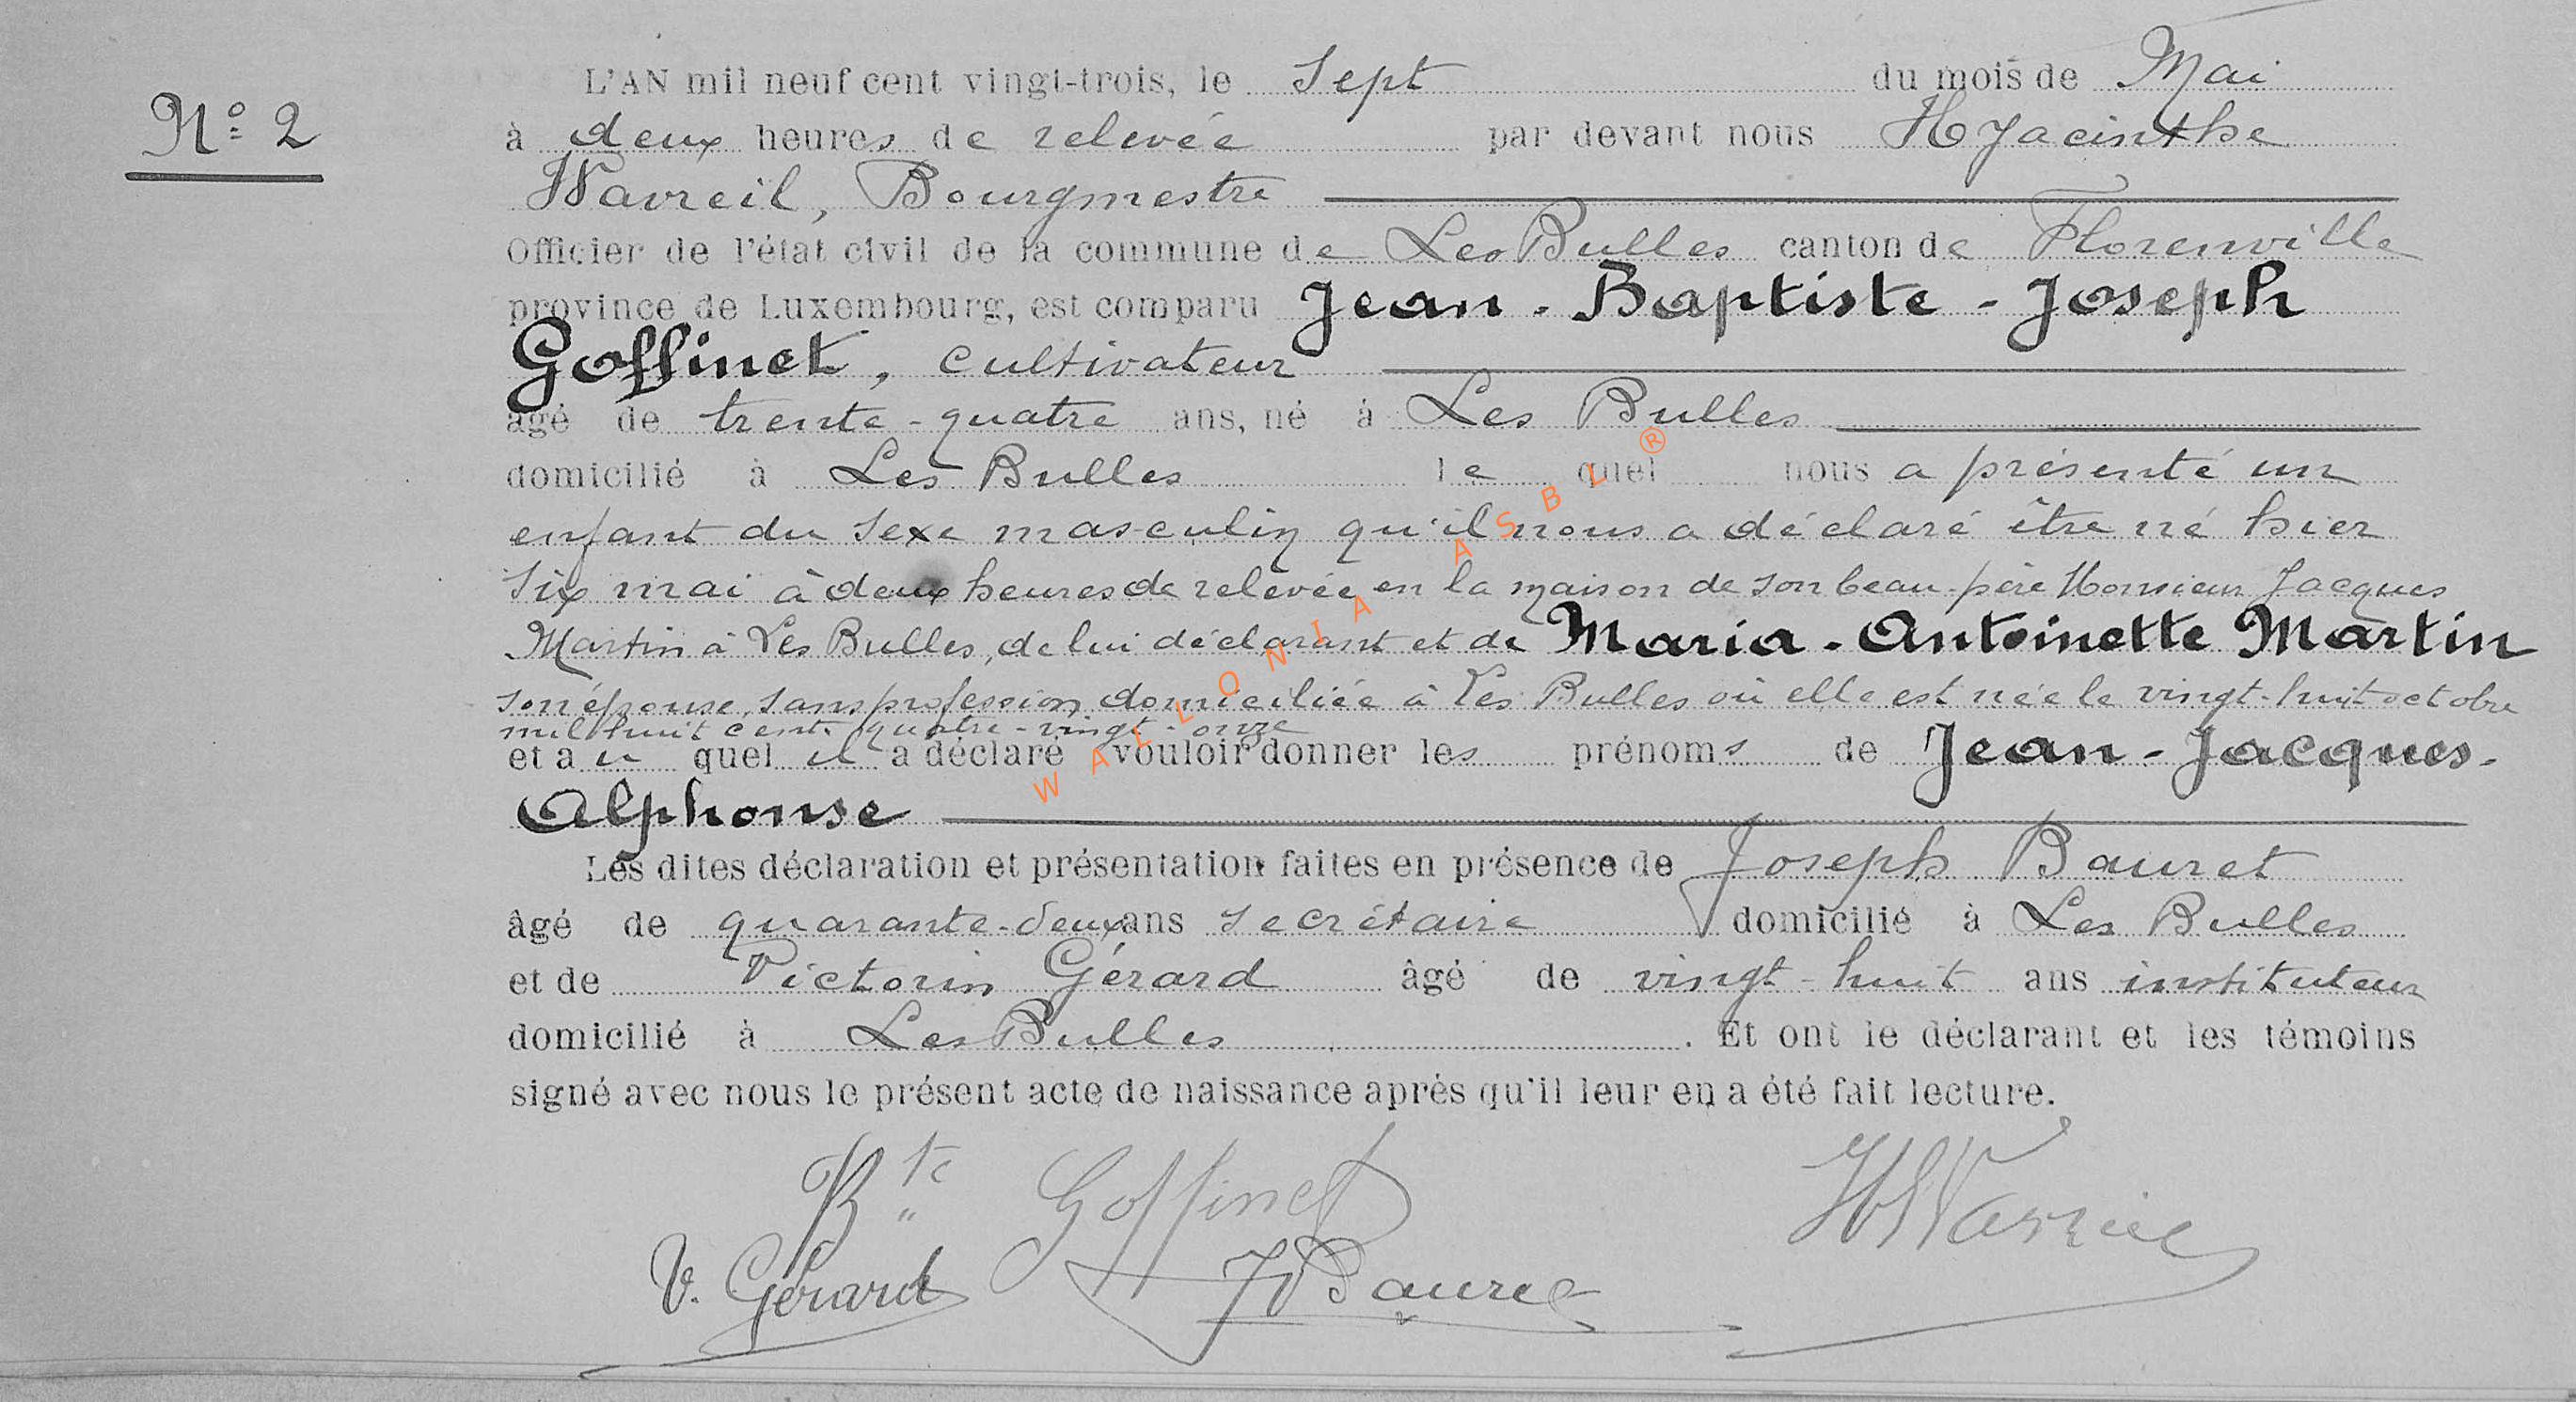 N° 2
L'AN mil neuf cent vingt-trois, le sept du mois de Mai
à deux heures de relevée par devant nous Hyacinthe
Wavreil, Bourgmestre
Officier de l'état civil de la commune de Les Bulles canton de Florenville
province de Luxembourg, est comparu Jean-Baptiste-Joseph
Goffinet, cultivateur
âgé de trente-quatre ans, né à Les Bulles
domicilié à Les Bulles le quel nous a présenté un
enfant du sexe masculin qu'il nous a déclaré être né hier
six mai à deux heures de relevée en la maison de son beau-père Monsieur Jacques
Martin à Les Bulles, de lui déclarant et de Maria-Antoinette Martin
son épouse, sans profession domiciliée à Les Bulles où elle est née le vingt-huit octobre
mil huit cent quatre-vingt-onze
et au quel il a déclaré vouloir donner les prénoms de Jean-Jacques-
Alphonse
Les dites déclaration et présentation faites en présence de Joseph Bauret
âgé de quarante-deux ans secrétaire domicilié à Les Bulles
et de Victorin Gérard âgé de vingt-huit ans instituteur
domicilié à Les Bulles. Et ont le déclarant et les témoins
signé avec nous le présent acte de naissance après qu'il leur en a été fait lecture.
Bte Goffinet
HWavreil
V. Gérard JBauret
WALLONIA ASBL ®